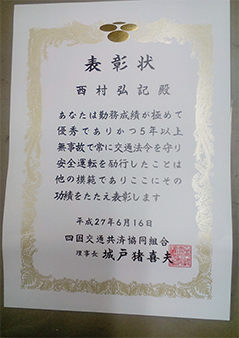 表彰状
西村弘記 殿
あなたは勤務成績が極めて
優秀でありかつ5年以上
無事故で常に交通法令を守り
安全運転を励行したことは
他の模範でありここにその
功績をたたえ表彰します
平成27年6月16日
四国交通共済協同組合
理事長 城戸猪喜夫